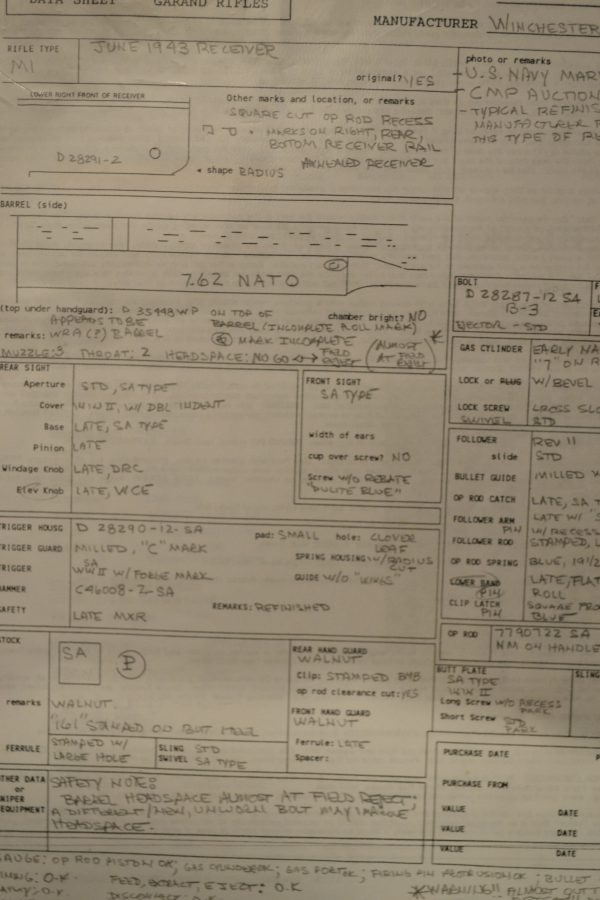 DATA SHEET GARAND RIFLES
MANUFACTURER WINCHESTER
RIFLE TYPE
M1
JUNE 1943 RECEIVER
original? YES
photo or remarks
- U.S. NAVY MAR
- CMP AUCTION
- TYPICAL REFINIS
MANUFACTURER
THIS TYPE OF
LOWER RIGHT FRONT OF RECEIVER
D 28291-2
Other marks and location, or remarks
SQUARE CUT OP ROD RECESS
MARKS ON RIGHT, REAR,
BOTTOM RECEIVER RAIL
ANNEALED RECEIVER
◂ shape RADIUS
BARREL (side)
7.62 NATO
(top under handguard): D 35448 WP ON TOP OF
BARREL (INCOMPLETE ROLL MARK)
chamber bright? NO
APPEARS TO BE
remarks: WRA (?) BARREL
MARK INCOMPLETE
(ALMOST AT FIELD REJECT) *
MUZZLE: 3 THROAT: 2 HEADSPACE: NO GO ↔ FIELD REJECT
BOLT
D 28287-12 SA
B-3
EJECTOR - STD
GAS CYLINDER EARLY NA
"7" ON R
LOCK or PLUG W/BEVEL
LOCK SCREW CROSS SLO
SWIVEL STD
REAR SIGHT
Aperture STD, SA TYPE
Cover WW II, W/ DBL INDENT
Base LATE, SA TYPE
Pinion LATE
Windage Knob LATE, DRC
Elev Knob LATE, WCE
FRONT SIGHT
SA TYPE
width of ears
cup over screw? NO
Screw W/O REBATE
"DULITE BLUE"
FOLLOWER REV 11
slide STD
BULLET GUIDE MILLED
OP ROD CATCH LATE, SA T
FOLLOWER ARM LATE W/
PIN W/RECESS
FOLLOWER ROD STAMPED, L
OP ROD SPRING BLUE, 19 1/2
LOWER BAND LATE/FLAT
PIN ROLL
CLIP LATCH SQUARE FRO
PIN BLUE
TRIGGER HOUSG D 28290-12-SA
pad: SMALL hole: CLOVER LEAF
TRIGGER GUARD MILLED, "C" MARK
SPRING HOUSING W/RADIUS CUT
TRIGGER SA
WW II W/ FORGE MARK
GUIDE W/O "WINGS"
HAMMER C46008-2-SA
REMARKS: REFINISHED
SAFETY LATE MXR
OP ROD 7790722 SA
NM ON HANDLE
STOCK
SA
P
remarks WALNUT
"161" STAMPED ON BUTT NEAR
FERRULE STAMPED W/
LARGE HOLE
SLING STD
SWIVEL SA TYPE
REAR HAND GUARD
WALNUT
Clip: STAMPED BMB
op rod clearance cut: YES
FRONT HAND GUARD
WALNUT
Ferrule: LATE
Spacer:
BUTT PLATE
SA TYPE
WW II
Long Screw W/O RECESS
PARK
Short Screw STD
PARK
SLING
PURCHASE DATE
PURCHASE FROM
VALUE DATE
VALUE DATE
VALUE DATE
OTHER DATA
or
SNIPER
EQUIPMENT
SAFETY NOTE:
BARREL HEADSPACE ALMOST AT FIELD REJECT;
A DIFFERENT/NEW, UNWORN BOLT MAY IMPROVE
HEADSPACE.
GAUGE: OP ROD PISTON OK; GAS CYLINDER OK; GAS PORT OK; FIRING PIN PROTRUSION OK; BULLET
O.K FEED, EXTRACT, EJECT: O.K
O.K DISCONNECT
*WARNING!! ALMOST OUT